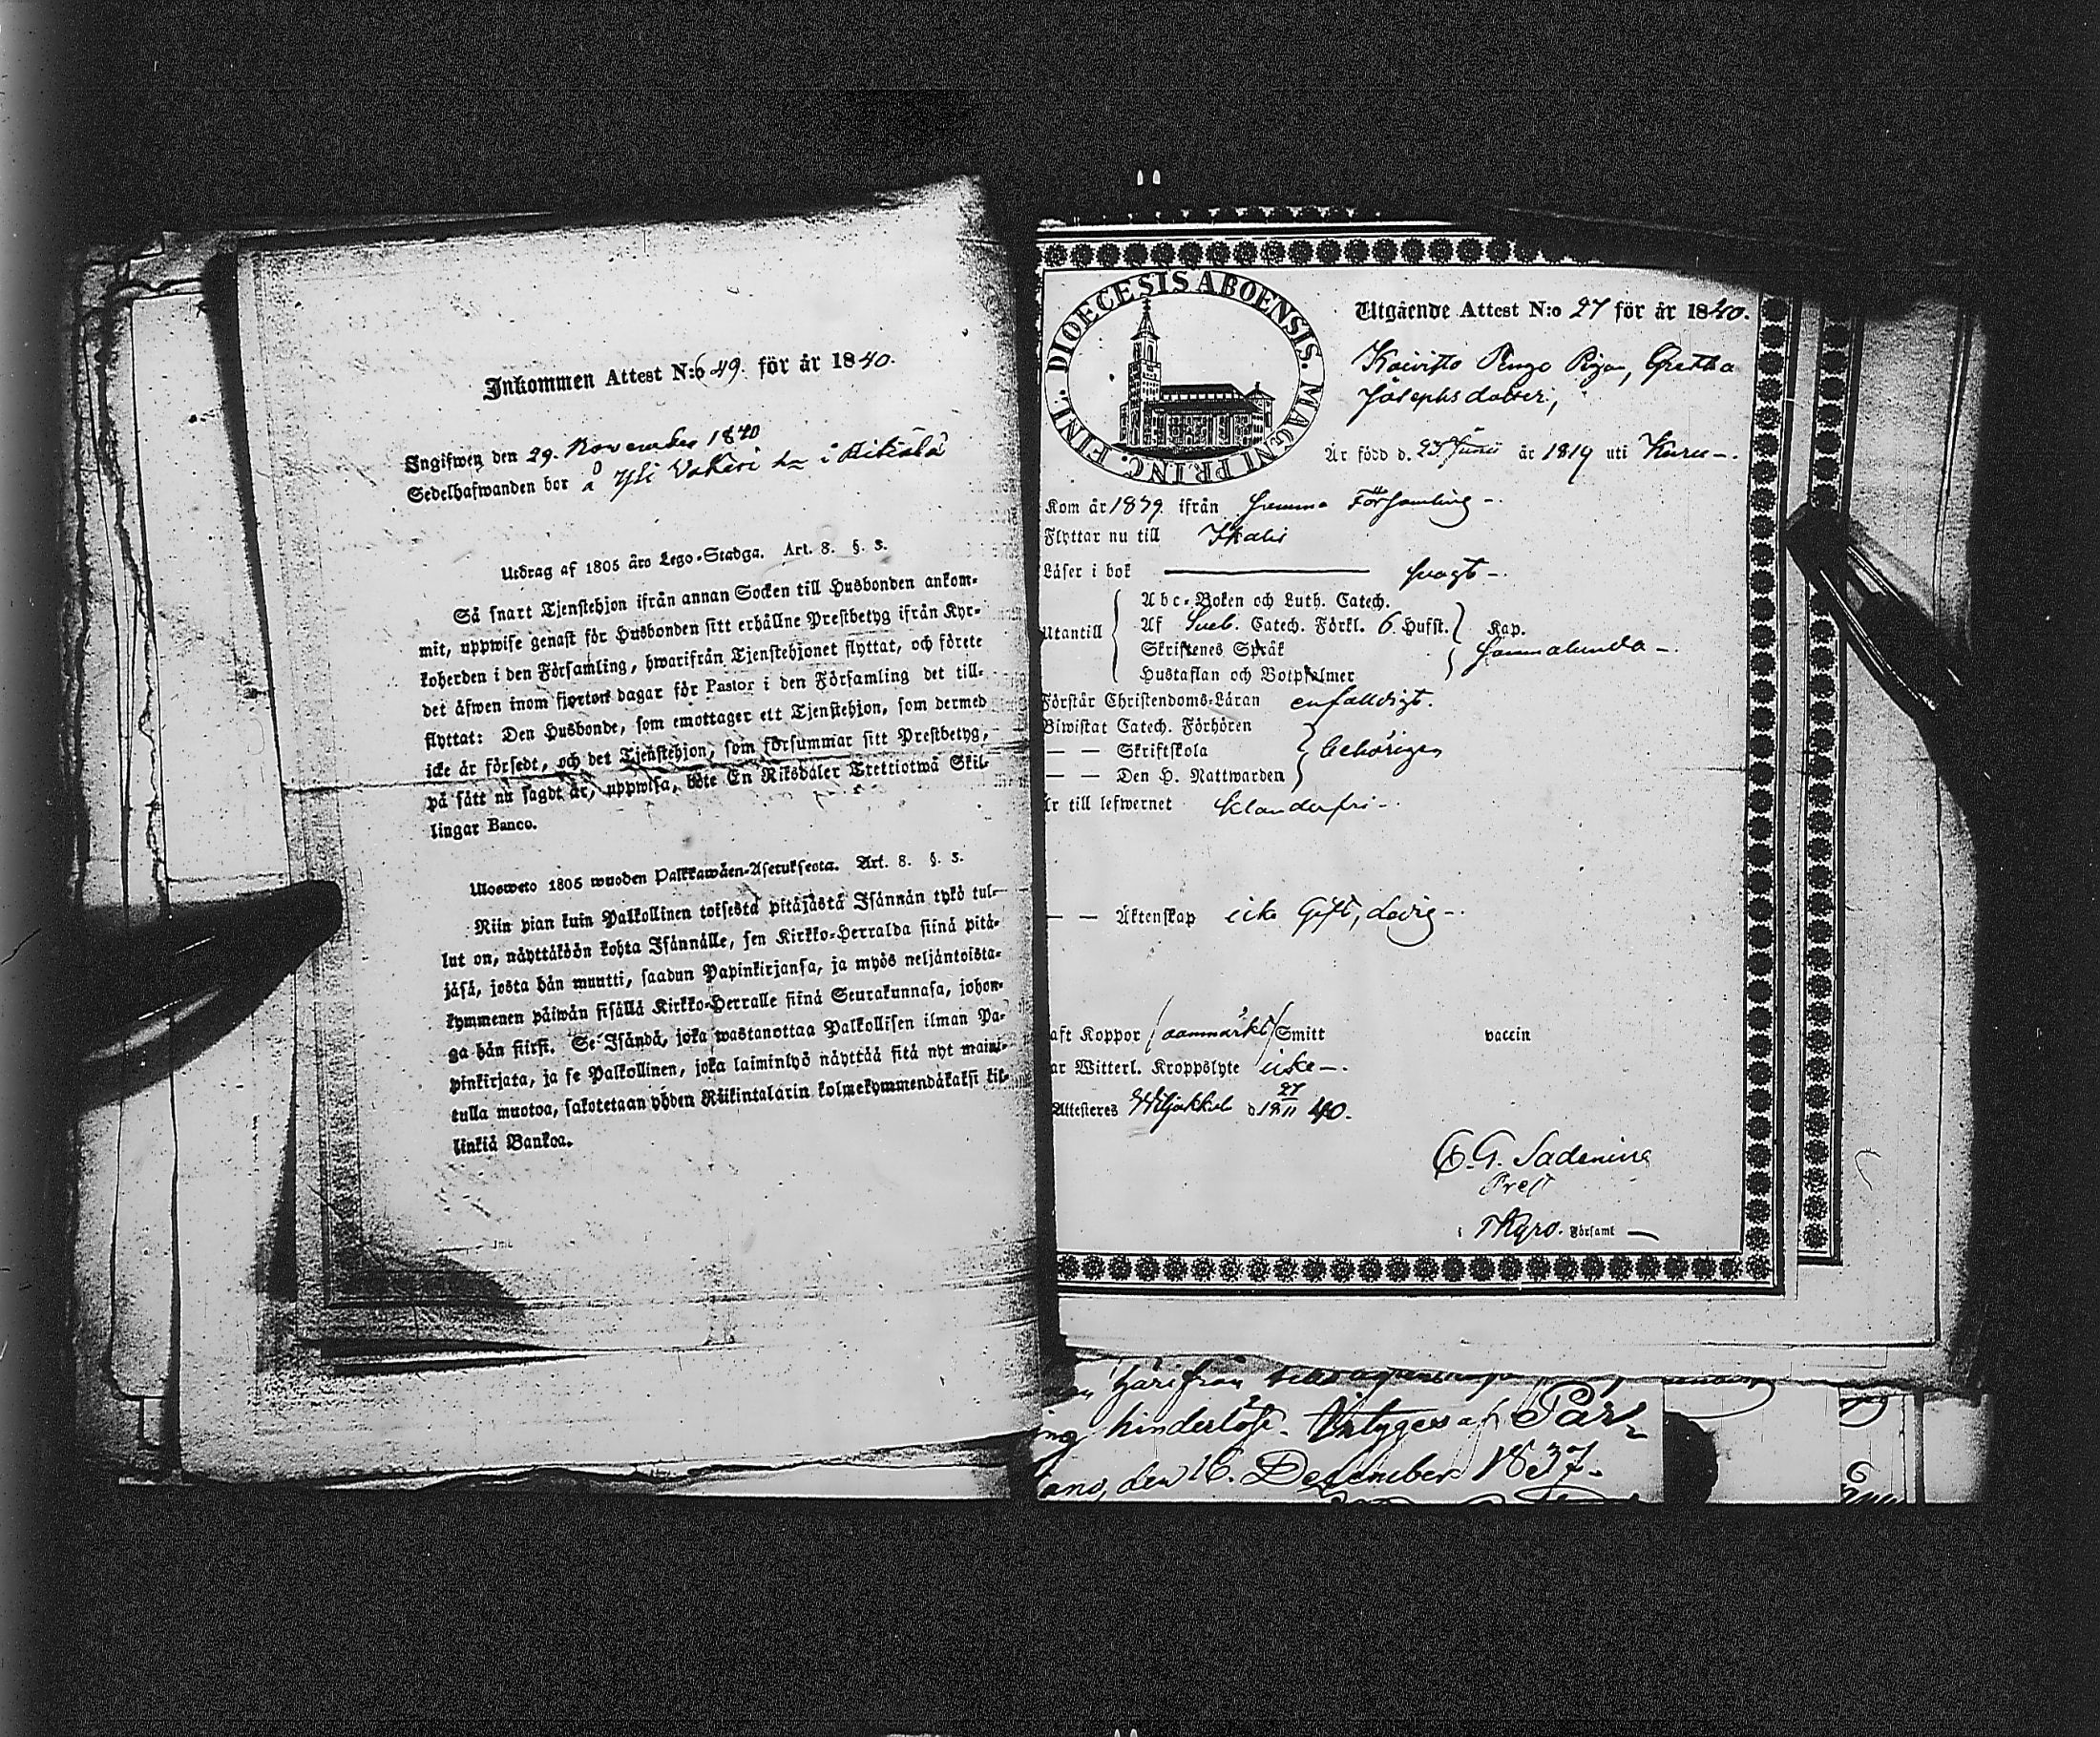 Inkommen Attest N:o 49. för år 1840.
Ingifwen den 29. November 1840
Sedelhafwanden bor å Yli Vakeri i
Utdrag af 1805 års Lego-Stadga. Art. 8. §. 3.
Så snart Tjenstehjon ifrån annan Socken till Husbonden ankom-
mit, uppwise genast för Husbonden sitt erhållne Prestbetyg ifrån Kyr-
koherden i den Församling, hwarifrån Tjenstehjonet flyttat, och förete
det äfwen inom fjorton dagar för Pastor i den Församling det till-
flyttat: Den Husbonde, som emottager ett Tjenstehjon, som dermed
icke är försedt, och det Tjenstehjon, som försummar sitt Prestbetyg,
på sätt nu sagdt är, uppwisa, böte En Riksdaler Trettiotwå Skil-
lingar Banco.
Ulosweto 1805 wuoden Palkkawäen-Asetuksesta. Art. 8. §. 3.
Niin pian kuin Palkollinen toisesta pitäjästä Isännän tykö tul-
lut on, näyttäköön kohta Isännälle, sen Kirkko-Herralda siinä pitä-
jäsä, josta hän muutti, saadun Papinkirjansa, ja myös neljäntoista-
kymmenen päiwän sisällä Kirkko-Herralle siinä Seurakunnasa, johon-
ga hän siirsi. Se Isändä, joka wastanottaa Palkollisen ilman Pa-
pinkirjata, ja se Palkollinen, joka laiminlyö näyttää sitä nyt maini-
tulla muotoa, sakotetaan yhden Riikintalarin kolmekymmendäkaksi kil-
linkiä Bankoa.
DIOECESIS ABOENSIS. MAGNI PRINC. FINL.
Utgående Attest N:o 27 för år 1840.
Koivisto Pigan, Gretha
Josephsdotter,
Är född d. 23 Junii år 1819 uti Kuru-.
Kom år 1839 ifrån samma Församling -.
Flyttar nu till Ikalis
Läser i bok svagt -.
Utantill
Abc-Boken och Luth. Catech.
Af Sveb. Catech. Förkl. 6. Hufst. Kap.
Skriftenes Språk
Hustaflan och Botpsalmer
sammalunda -.
Förstår Christendoms-Läran enfaldigt.
Biwistat Catech. Förhören
— — Skriftskola
— — Den H. Nattwarden
behörigen
Är till lefwernet klanderfri -.
— — Äktenskap icke Gift, ledig -.
aft Koppor Smitt vaccin
ar Witterl. Kroppslyte icke -.
Attesteres Wiljakkala d 27/11 1840.
Prest
i Församl —
härifrån
ing hinderlöst. Betygas af Par=
ano, den 16. December 1837.